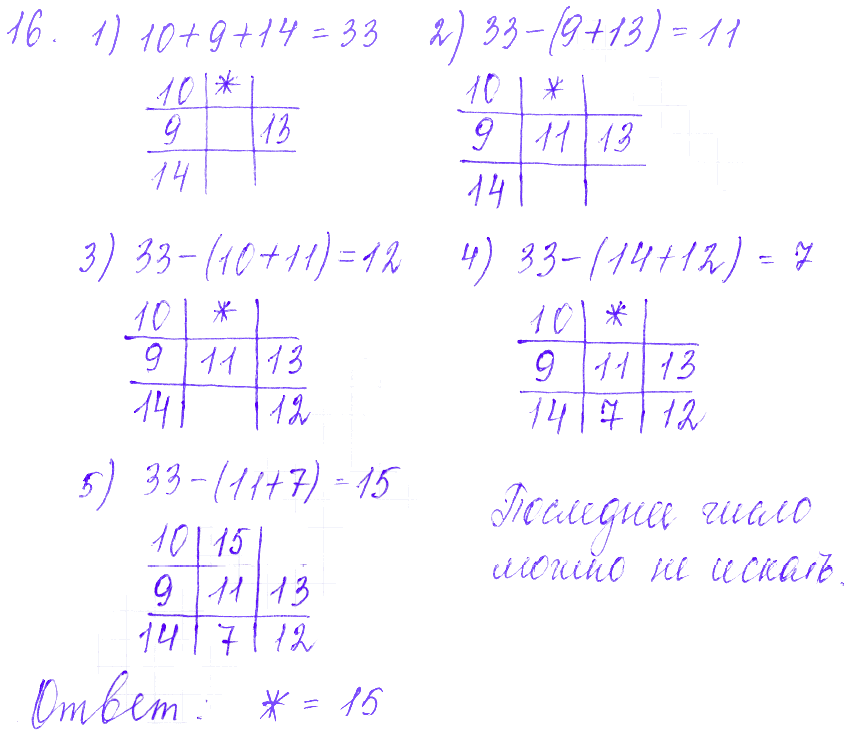 16. 1) 10+9+14=33 2) 33-(9+13)=11
10 * 10 *
9 13 9 11 13
14 14
3) 33-(10+11)=12 4) 33-(14+12)=7
10 * 10 *
9 11 13 9 11 13
14 12 14 7 12
5) 33-(11+7)=15
10 15
9 11 13
14 7 12
Последнее число
можно не искать.
Ответ: * = 15